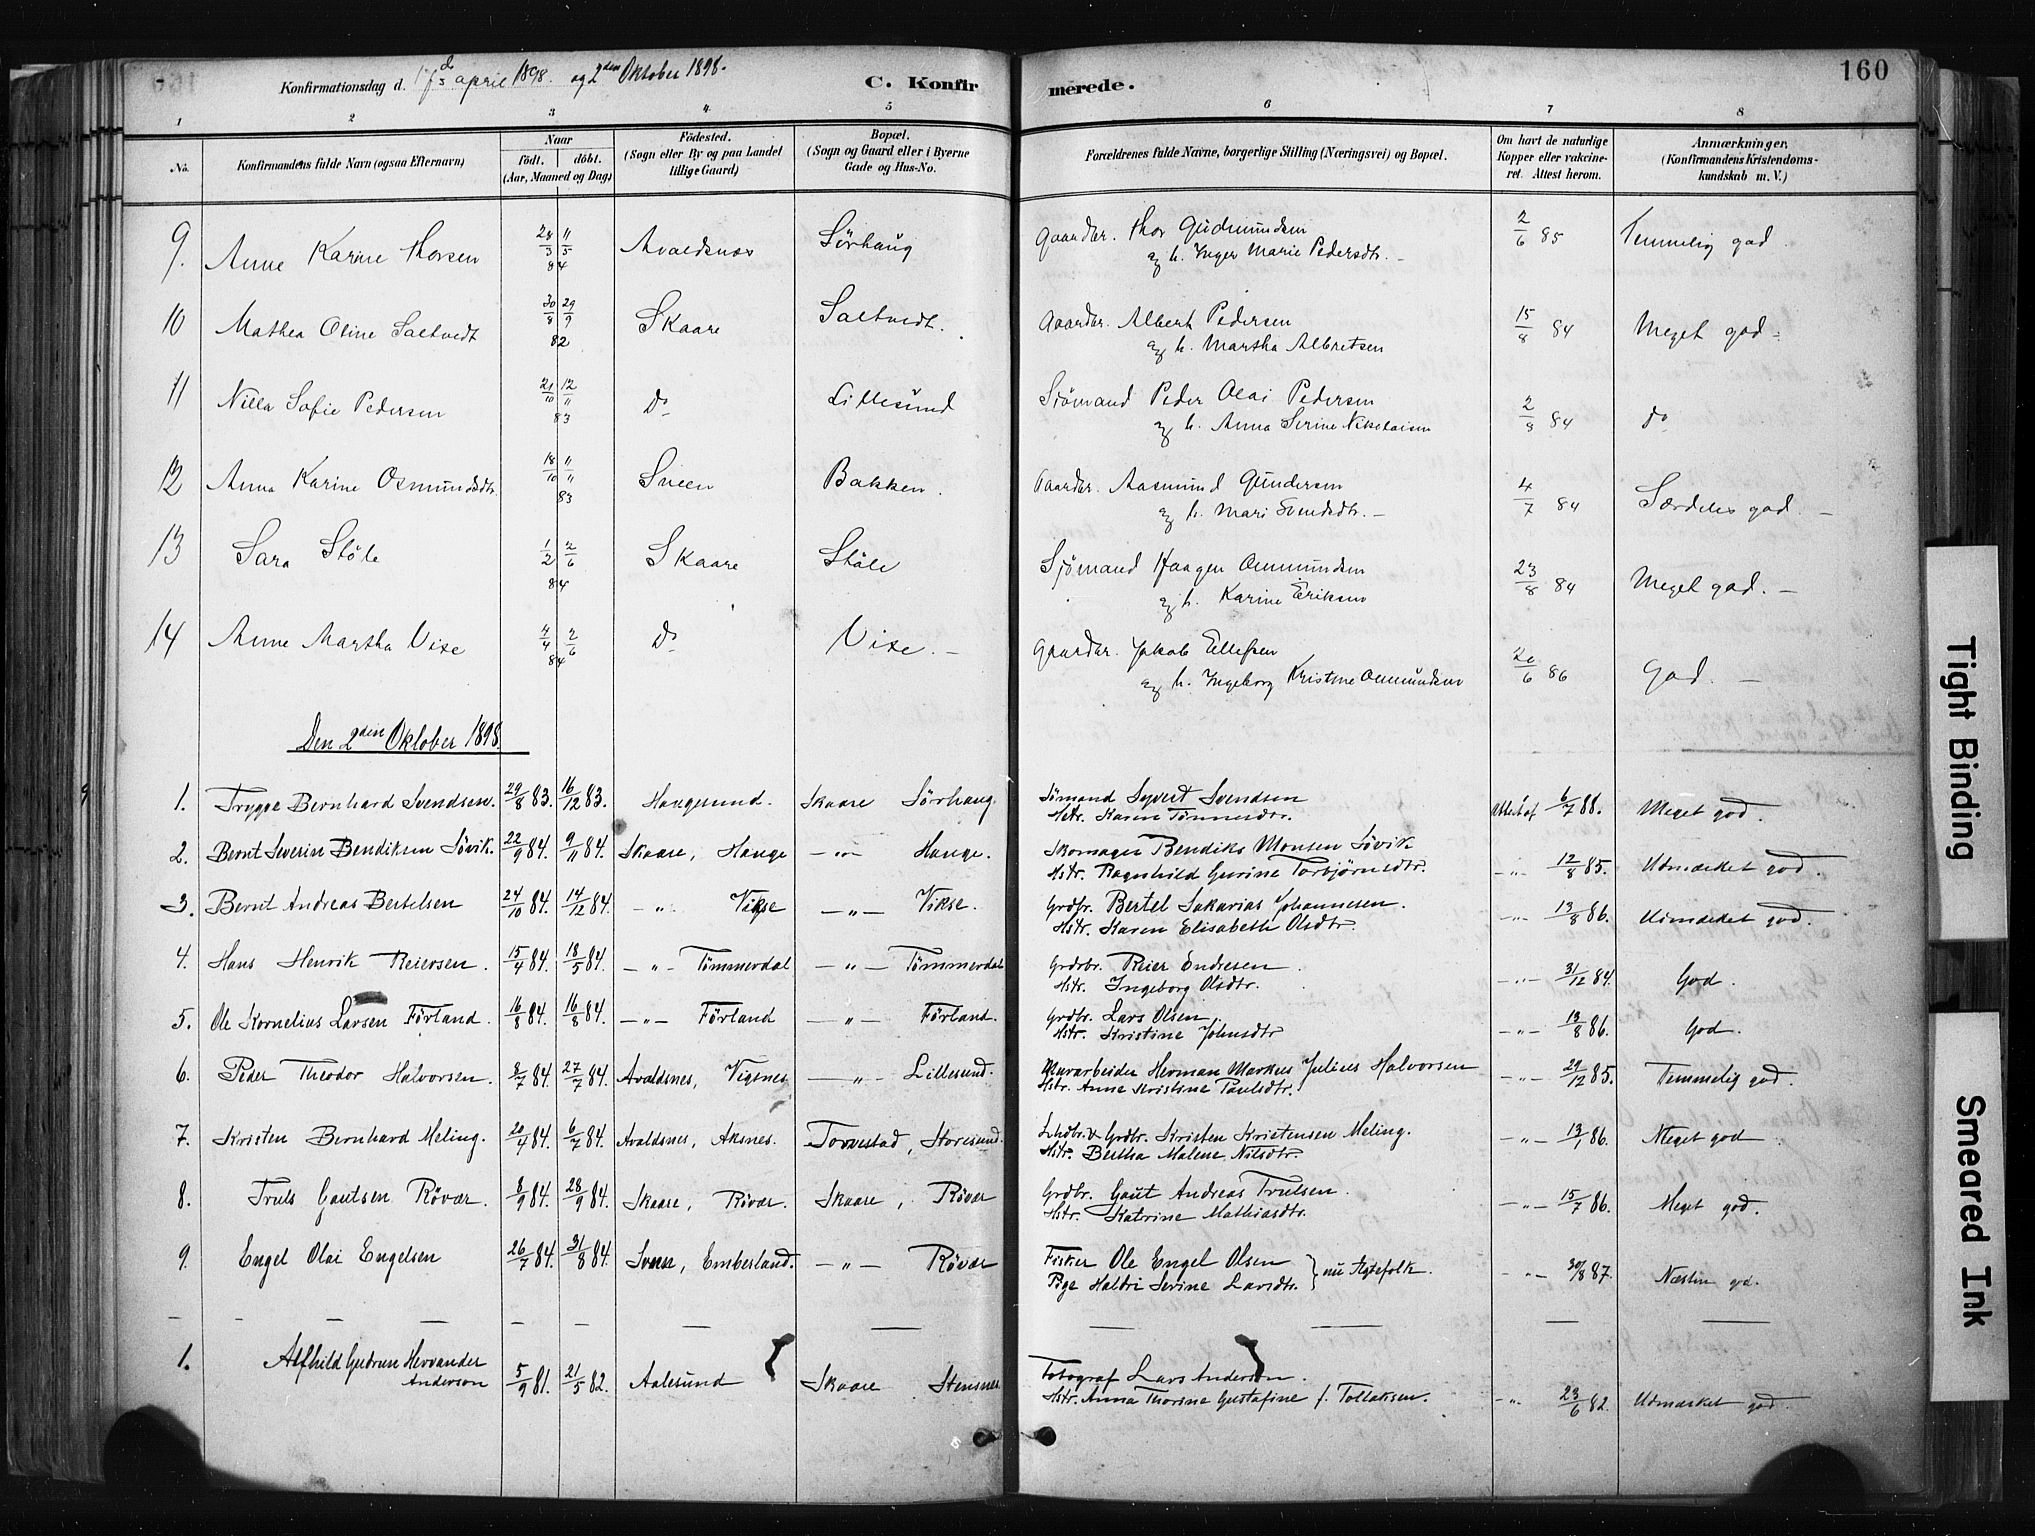 160
Konfirmationsdag d. 17/3 april 1898. og 2den Oktober 1898.
C. Konfirmerede.
1 2 3 4 5 6 7 8
No. Konfirmandens fulde Navn (ogsaa Efternavn) Naar født. døbt. (Aar, Maaned og Dag) Fødested. (Sogn eller By og paa Landet tillige Gaard) Bopæl. (Sogn og Gaard eller i Byerne Gade og Hus-No. Forældrenes fulde Navne, borgerlige Stilling (Næringsvei) og Bopæl. Om havt de naturlige Kopper eller vakcineret. Attest herom. Anmærkninger. (Konfirmandens Kristendomskundskab m. V.)
9. Anne Karine Thorsen 28/3 11/5 84 Avaldsnæs Sørhaug Gaardbr. Thor Gudmundsen
og h. Inger Marie Pedersdtr. 2/6 85 Temmelig god
10 Mathea Oline Saltvedt 30/8 29/9 82 Skaare Saltvedt. Gaardbr. Albert Pedersen
og h. Martha Albretsen 15/8 84 Meget god
11 Nilla Sofie Pedersen 21/10 12/11 83 Do Lillesund Sjömand Peder Olai Pedersen
og h. Anna Serine Nikolaisen 2/8 84 do
12 Anna Karine Osmundsdtr. 18/10 11/11 83 Sveen Bakken. Gaardbr. Aasmund Gundersen
og h. Mari Svendsdtr. 4/7 84 Særdeles god.
13 Sara Stöle 1/2 2/6 84 Skaare Stöle Sjömand Haagen Ommundsen
og h. Karine Eriksen 23/8 84 Meget god.
14 Anne Martha Vixe 4/4 2/6 84 Do Vixe. Gaardbr. Jakob Ellefsen
og h. Ingeborg Kristine Ommundsen 20/6 86 God.
Den 2den Oktober 1898
1. Trygge Bernhard Svendsen. 29/8 83. 16/12 83. Haugesund. Skaare Sörhaug. Sömand Syvert Svendsen
Hstr. Karen Tönnesdtr. Attest af 6/7 88. Meget god.
2. Bernt Severin Bendiksen Sövik. 22/9 84. 9/11 84. Skaare, Hauge -"- Hauge. Skomager Bendiks Monsen Sövik
Hstr. Ragnhild Gurine Torbjörnsdtr. -"- 12/8 85. Udmærket god.
3. Bernt Andreas Bertelsen 24/10 84. 14/12 84. -"- Vikse -"- Vikse. Grdbr. Bertel Sakarias Johannesen.
Hstr. Karen Elisabeth Olsdtr. -"- 13/8 86. Udmærket god.
4. Hans Henrik Reiersen. 15/4 84. 18/5 84. -"- Tömmerdal -"- Tömmerdal Grdbr. Reier Endresen
Hstr. Ingeborg Olsdtr. -"- 31/12 84. God.
5. Ole Kornelius Larsen Förland. 16/8 84. 16/8 84. -"- Förland -"- Förland. Grdbr. Lars Olsen
Hstr. Kristine Johnsdtr -"- 13/8 86. God.
6. Peder Theodor Halvorsen. 8/7 84. 27/7 84. Avaldsnes, Vigsnes -"- Lillesund. Gruvarbeider Herman Markus Julius Halvorsen
Hstr. Anne Kristine Paulsdtr. -"- 29/12 85. Temmelig god.
7. Kristen Bernhard Meling. 20/4 84. 6/7 84. Avaldsnes, Aksnes. Torvestad, Storesund. Grdbr. Kristen Kristensen Meling.
Hstr. Bertha Malene Nilsdtr. -"- 13/1 86. Meget god
8. Truls Gautsen Rövær. 8/9 84. 28/9 84. Skaare, Rövær. Skaare, Rövær Grdbr. Gaut Andreas Trulsen.
Hstr. Katrine Mathiasdtr. -"- 15/7 86. Meget god.
9. Engel Olai Engelsen 26/7 84. 31/8 84. Sveen, Emberland. -"- Rövær Fisker Ole Engel Olsen
Pige Haldri Serine Larsdtr. } nu Ægtefolk. -"- 30/8 87. Næsten gd.
1. Alfhild Gudrun Hervander
Anderson 5/9 81. 21/5 82. Aalesund Skaare Stensnes Fotograf Lars Anderson.
Hstr. Anna Thorine Gustafine f. Tollaksen. -"- 23/6 82. Udmærket god.
Tight Binding
Smeared Ink